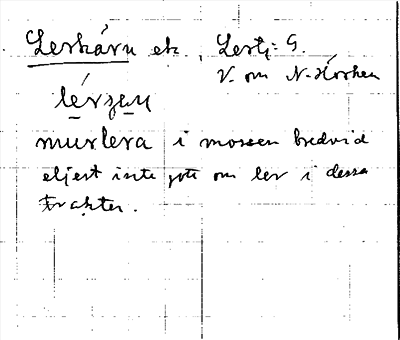 Lerkärn ek., Lertj: G.
V. om N. Hörken
lérzeņ
murlera i mossen bredvid
eljest inte gott om ler i dessa
trakter.